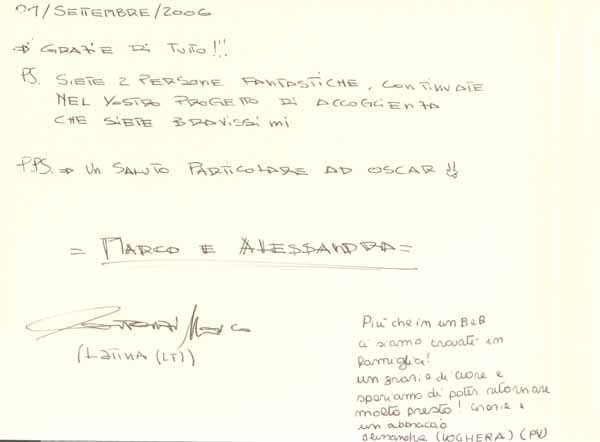 01/SETTEMBRE/2006
⇒ GRAZIE DI TUTTO!!!
PS. SIETE 2 PERSONE FANTASTICHE, CONTINUATE
NEL VOSTRO PROGETTO DI ACCOGLIENZA
CHE SIETE BRAVISSIMI
P.PS. ⇒ UN SALUTO PARTICOLARE AD OSCAR !!
= MARCO E ALESSANDRA =
Marco
(LATINA (LT))
Più che in un B&B
ci siamo trovati in
famiglia!
un grazie di cuore e
speriamo di poter ritornare
molto presto! Grazie e
un abbraccio
Alessandra (VOGHERA) (PV)